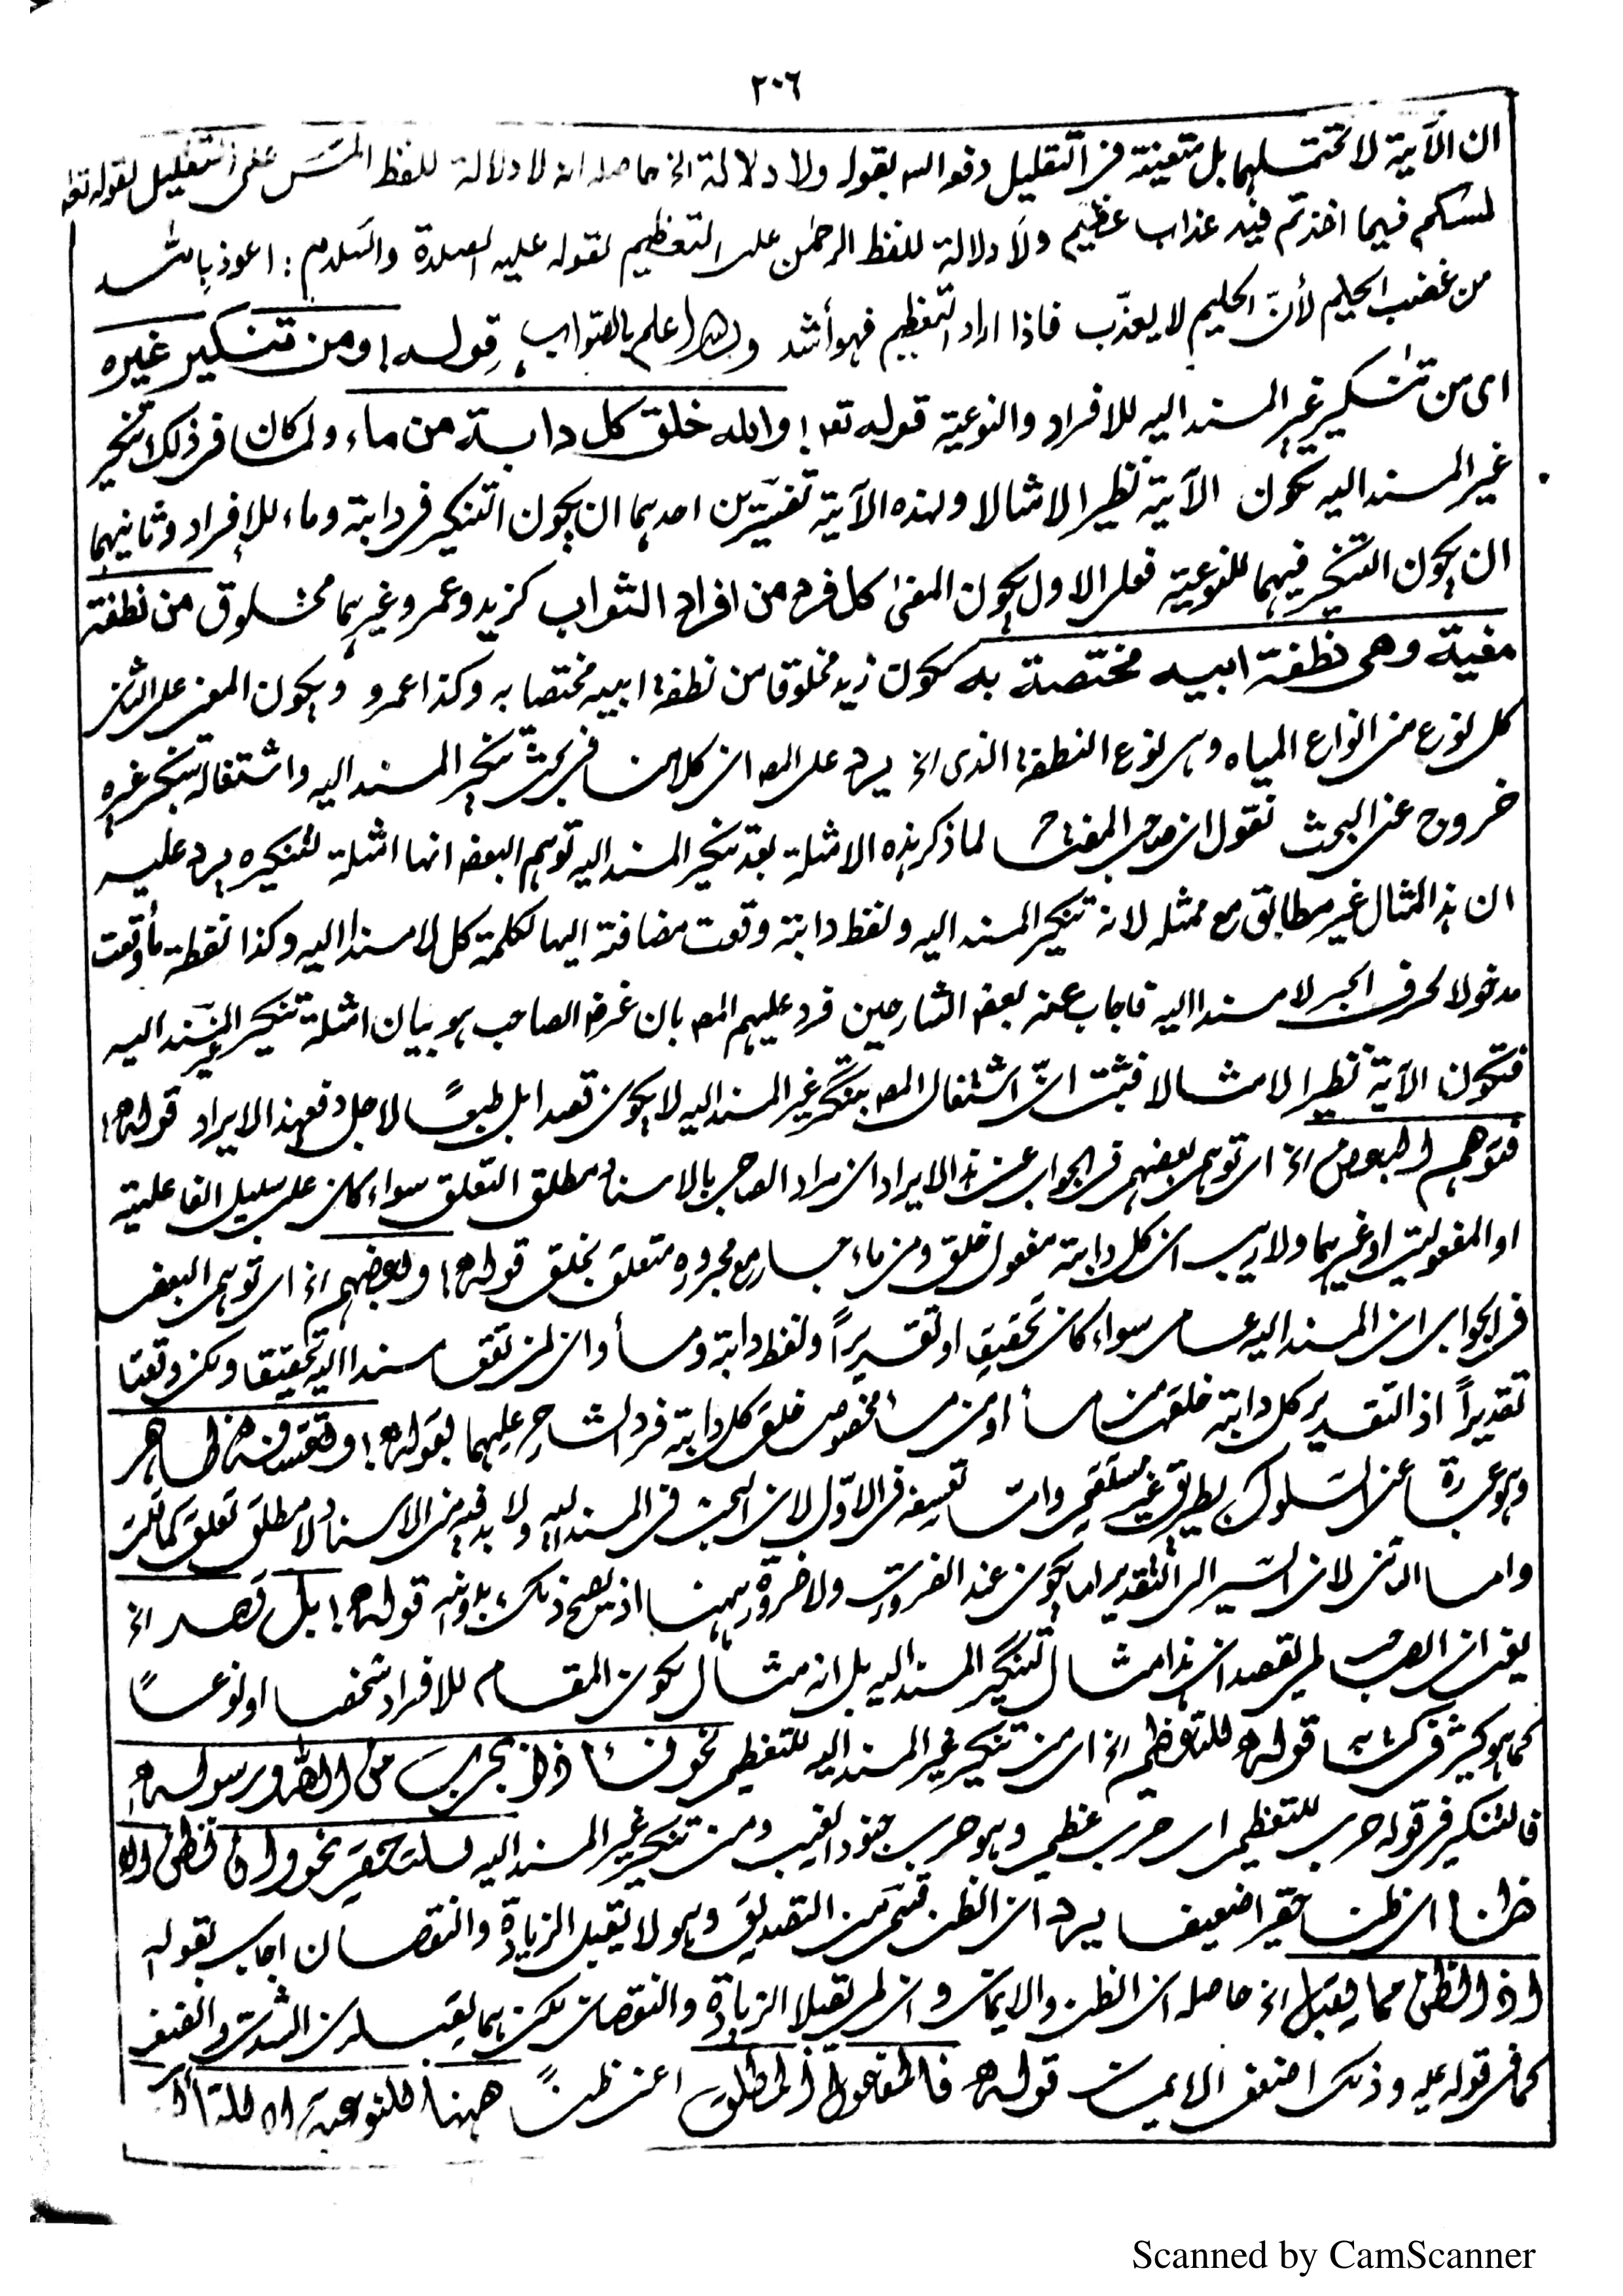 ٢٠٦
ان الآية لا تحتملهما بل متعينة فى التقليل دفع الله بقوله ولا دلالة الخ حاصله انه لا دلالة للفظ المس على التقليل لقوله تعا
لمسكم فيما اخذتم فيه عذاب عظيم ولا دلالة للفظ الرحمن على التعظيم لقوله عليه الصلوة والسلام : اعوذ بالله
من غضب الحليم لأنّ الحليم لا يعذّب فاذا اراد التعظيم فهو أشد والله اعلم بالصواب قوله ومن تنكير غيره
اى من تنكير غير المسند اليه للافراد والنوعية قوله تعـ والله خلق كل دابة من ماء ولما كان فى ذلك تنكير
غير المسند اليه تكون الآية نظيرا لا مثالا ولهذه الآية تفسيرين احدهما ان يكون التنكير فى دابة وماء للإفراد وثانيهما
ان يكون التنكير فيهما للنوعية فعلى الاول يكون المعنى كل فرد من افراد الدواب كزيد وعمرو وغيرهما مخلوق من نطفة
معينة وهى نطفة ابيه مختصة به ككون زيد مخلوقا من نطفة ابيه مختصا به وكذا عمرو ويكون المعنى على الثانى
كل نوع من انواع المياه وهى نوع النطفة الذى الخ يرد على المصـ ان كلامنا فى بحث تنكير المسند اليه واشتغاله بتنكير غيره
خروج عن البحث نقول ان صاحب المفتاح لما ذكر هذه الامثلة بعد تنكير المسند اليه توهم البعض انها امثلة لتنكيره يرد عليه
ان هذا المثال غير مطابق مع ممثله لانه تنكير المسند اليه ولفظ دابة وقعت مضافة اليها لكلمة كل لا مسندا اليه وكذا لفظة ماء وقعت
مدخولا لحرف الجر لا مسندا اليه فاجاب عنه بعض الشارحين فرد عليهم المصـ بان غرض الصاحب هو بيان امثلة تنكير غير المسند اليه
فتكون الآية نظيرا لا مثالا فثبت انّ اشتغال المصـ بتنكير غير المسند اليه لا يكون قصدا بل طبعاً لاجل دفع هذا الايراد قوله
فتوهم البعض الخ اى توهم بعضهم فى الجواب عن هذا الايراد ان مراد الصاحب بالاسناد مطلق التعلق سواء كان على سبيل الفاعلية
او المفعولية او غيرهما ولا ريب ان كل دابة مفعول خلق ومن ماء جار مع مجروره متعلق بخلق قوله وبعضهم الخ اى توهم البعض
فى الجواب ان المسند اليه عام سواء كان تحقيق او تقديراً ولفظ دابة وماء وان لم تقع مسندا اليه تحقيقا ولكن وقعتا
تقديراً اذ التقدير كل دابة خلقها من ماء او من ماء مخصوص خلق كل دابة فرد الشارح عليهما بقوله وتعسفه ظاهر
وهو عبارة عن السلوك بطريق غير مستقيم واما تعسفه فى الاوّل لان البحث فى المسند اليه ولا بد فيه من الاسناد لا مطلق تعلق كما قلت
واما الثانى لان السير الى التقدير انما يكون عند الضرورة ولا ضرورة ههنا اذ يصح ذلك بدونه قوله بل قصد الخ
يعنى ان الصاحب لم يقصد ان هذا مثال لتنكير المسند اليه بل انه مثال لكون المقام للافراد شخصا او نوعاً
كما هو كثير فى كتابه قوله للتعظيم الخ اى من تنكير غير المسند اليه للتعظيم نحو فأذنوا بحرب من الله ورسوله
فالتنكير فى قوله حرب للتعظيم اى حرب عظيم وهو حرب جنود الغيب ومن تنكير غير المسند اليه للتحقير نحو ان نظن الا
ظنا اى ظنا حقيرا ضعيفا يرد ان الظن قسم من التصديق وهو لا يقبل الزيادة والنقصان اجاب بقوله
اذ الظن مما يقبل الخ حاصله ان الظن والايمان وان لم يقبلا الزيادة والنقصان لكن هما يقبلان الشدة والضعف
كما فى قوله عليه وذلك اضعف الايمان قوله فالمفعول المطلق اعنى ظناً ههنا للنوعية لا للتأكيد
Scanned by CamScanner